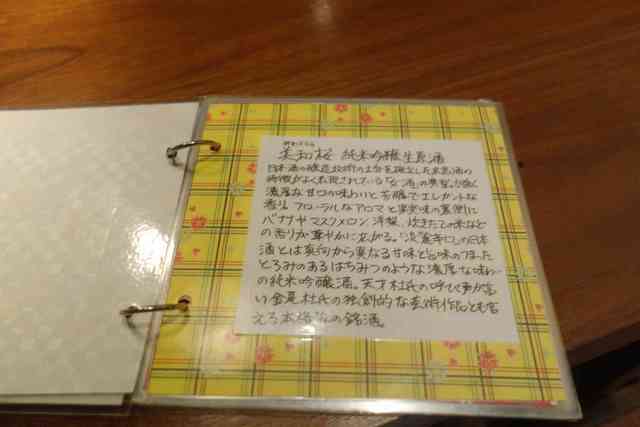 美和桜 純米吟醸生原酒
日本酒の醸造技術の土台を確立した広島酒の
特徴がよく表現されている「女酒」の典型。力強く
濃厚な甘口の味わいと芳醇でエレガントな
香り フローラルなアロマと果実味の裏側に
バナナやマスクメロン 洋梨、炊きたての米など
の香りが華やかに広がる。淡麗辛口の日本
酒とは真向から異なる甘味と旨味のつまった
とろみのあるはちみつのような濃厚な味わい
の純米吟醸酒。天才杜氏の呼び声が高
い金尾杜氏の独創的な芸術作品とも言
える本格派の銘酒。